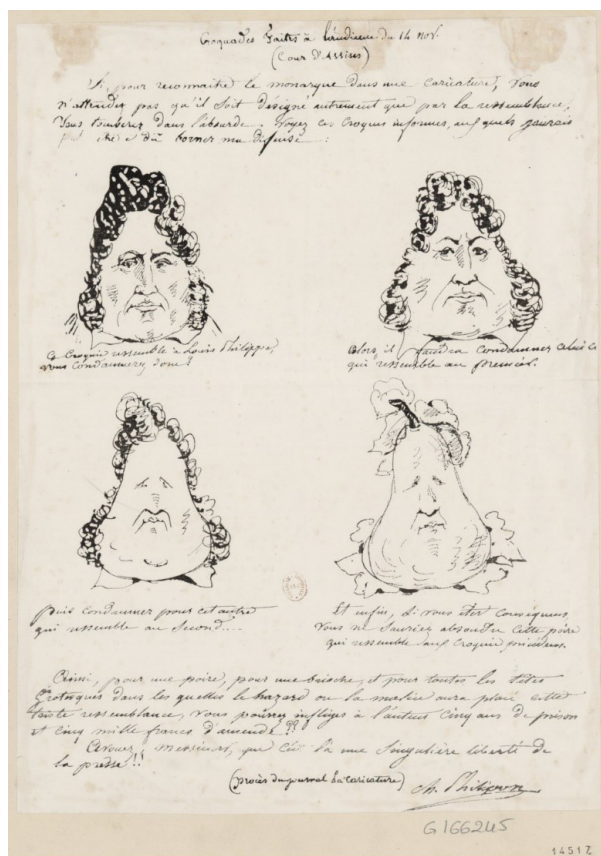 Croquades faites à l'audience du 14 Nov.
(Cour d'Assises)
Si, pour reconnaitre le monarque dans une caricature, vous
n'attendez pas qu'il soit désigné autrement que par la ressemblance,
vous tomberez dans l'absurde. Voyez ces croquis informes, aux quels j'aurais
peut être dû borner ma défense :
Ce Croquis ressemble à Louis Philippe,
vous condamnerez donc ?
Alors, il faudra condamner celui ci
qui ressemble au premier.
puis condamner pour cet autre
qui ressemble au second....
Et enfin, si vous êtes conséquens,
Vous ne sauriez absoudre cette poire
qui ressemble aux Croquis précédens.
Ainsi, pour une poire, pour une brioche, et pour toutes les têtes
grotesques dans les quelles le hazard ou la malice aura placé cette
triste ressemblance, vous pourrez infliger à l'auteur cinq ans de prison
et cinq mille francs d'amende !!
Avouez, Messieurs, que c'est là une singulière liberté de
la presse !!
(procès du journal La Caricature)
Ch. Philipon
G166245
14517